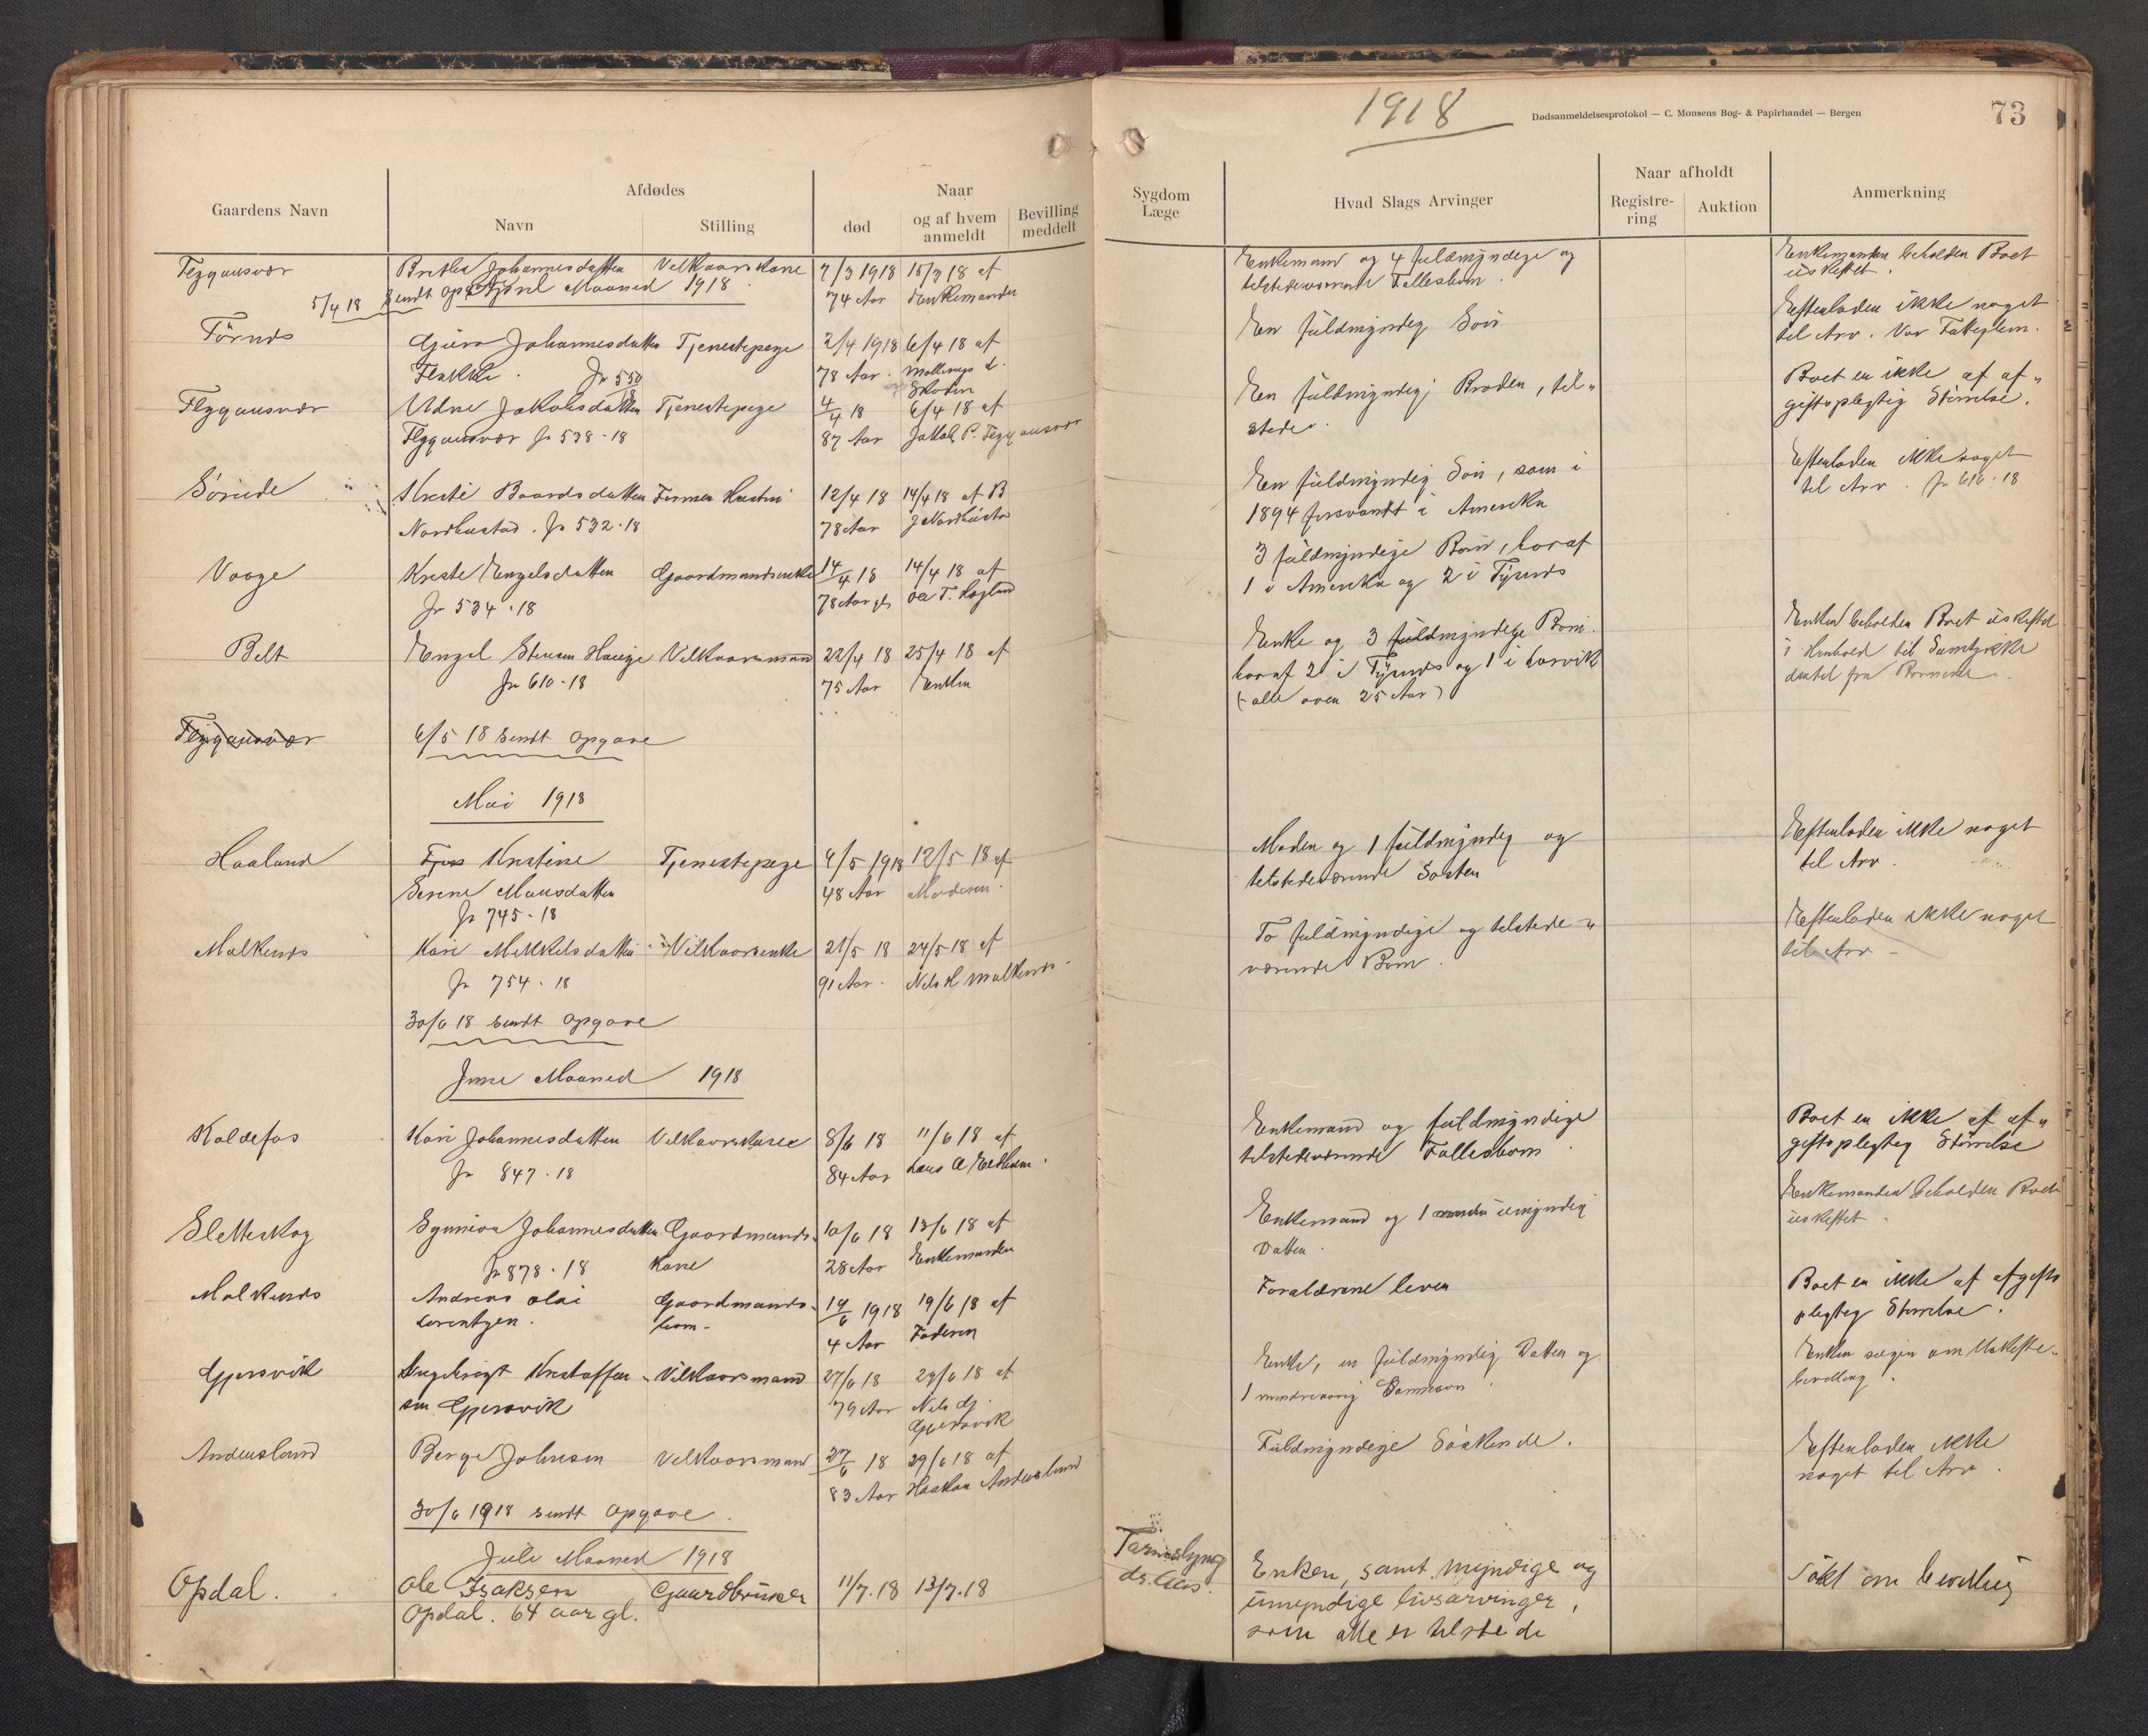 1918
Dødsanmeldelsesprotokol — C. Monsens Bog- & Papirhandel — Bergen
73
Gaardens Navn
Afdødes
Navn
Stilling
Naar
død
og af hvem
anmeldt
Bevilling
meddelt
Sygdom
Læge
Hvad Slags Arvinger
Naar afholdt
Registre-
ring
Auktion
Anmerkning
Johannesdatter Velkaarskone 7/3 1918 15/3 18 af
Enkemand og 4 fuldmyndige og
Enkemanden beholder Boet
uskiftet.
5/4 18 sendt Opg April Maaned 1918.
74 Aar Enkemanden
tilstedeværende Fællesbørn.
Johannesdatter Tjenestepige 2/4 1918 6/4 18 af
Jr 550/18
78 Aar.
En fuldmyndig Søn
Efterlader ikke noget
til Arv. Var Fattiglem.
Jakobsdatter Tjenestepige 4/4 18 6/4 18 af
Jr 538-18
87 Aar Jakob P.
En fuldmyndig Broder, til„
stede.
Boet er ikke af af„
giftspligtig Størrelse.
Baardsdatter 12/4 18 14/4 18 af B
Jr 532-18
78 Aar
En fuldmyndig Søn, som i
1894 forsvandt i Amerika
Efterlader ikke noget
til Arv. Jr 616-18
Vaage
Engelsdatter Gaardmandsenke 14/4 18 14/4 18 af
Jr 534-18
78 Aar gl
3 fuldmyndige Børn, hvoraf
1 i Amerika og 2 i Tysnes
Belt
Engel Velkaarsmand 22/4 18 25/4 18 af
Jr 610-18
75 Aar Enken
Enke og 3 fuldmyndige Børn.
hvoraf 2 i Tysnes og 1 i
(alle over 25 Aar)
Enken beholder Boet uskiftet
i Henhold til Samtykke
fra Børnene.
6/5 18 sendt Opgave
Mai 1918
Haaland
Kristine Tjenestepige 9/5 1918 12/5 18 af
Serine Monsdatter
48 Aar Moderen.
Jr 745-18
Moder og 1 fuldmyndig og
tilstedeværende Søster
Efterlader ikke noget
til Arv.
Malkenes
Kari Mikkelsdatter Velkaarsenke 21/5 18 24/5 18 af
Jr 754-18
91 Aar. Nils H Malkenes
To fuldmyndige og tilstede„
værende Børn.
Efterlader ikke noget
til Arv -
30/6 18 sendt Opgave
June Maaned 1918
Koldefos
Kari Johannesdatter Velkaarskone 8/6 18 11/6 18 af
Jr 847-18
84 Aar
Enkemand og fuldmyndige
tilstedeværende Fællesbørn.
Boet er ikke af af„
giftspligtig Størrelse
Sletteskog
Synneva Johannesdatter Gaardmands- 10/6 18 13/6 18 af
Jr 878-18 Kone
28 Aar Enkemanden
Enkemand og 1 umyndig
Datter.
Enkemanden beholder Boet
uskiftet.
Malkenes
Andreas Olai Gaardmands- 14/6 1918 19/6 18 af
Lorentzen. barn-
4 Aar Faderen
Forældrene lever
Boet er ikke af afgifts
pligtig Størrelse.
Gjersvik
Ingebrigt Kristoffer- Velkaarsmand 27/6 18 29/6 18 af
sen Gjersvik
79 Aar Nils Gj.
Gjersvik
Enke, en fuldmyndig Datter og
1 mindreaarig Barnebarn.
Enken søger om Uskifte-
bevilling.
Anderslund
Berge Johnsen Velkaarsmand 27/6 18 29/6 18 af
83 Aar Haakon Anderslund
Fuldmyndige Søskende.
Efterlader ikke
noget til Arv.
30/6 1918 sendt Opgave.
Juli Maaned 1918
Opdal.
Ole Isaksen Gaardbruker 11/7.18 13/7.18
Opdal. 64 aar gl.
Tarmslyng
dr. Aas.
Enken, samt myndige og
umyndige livsarvinger,
som alle er tilstede
Søkt om bevilling